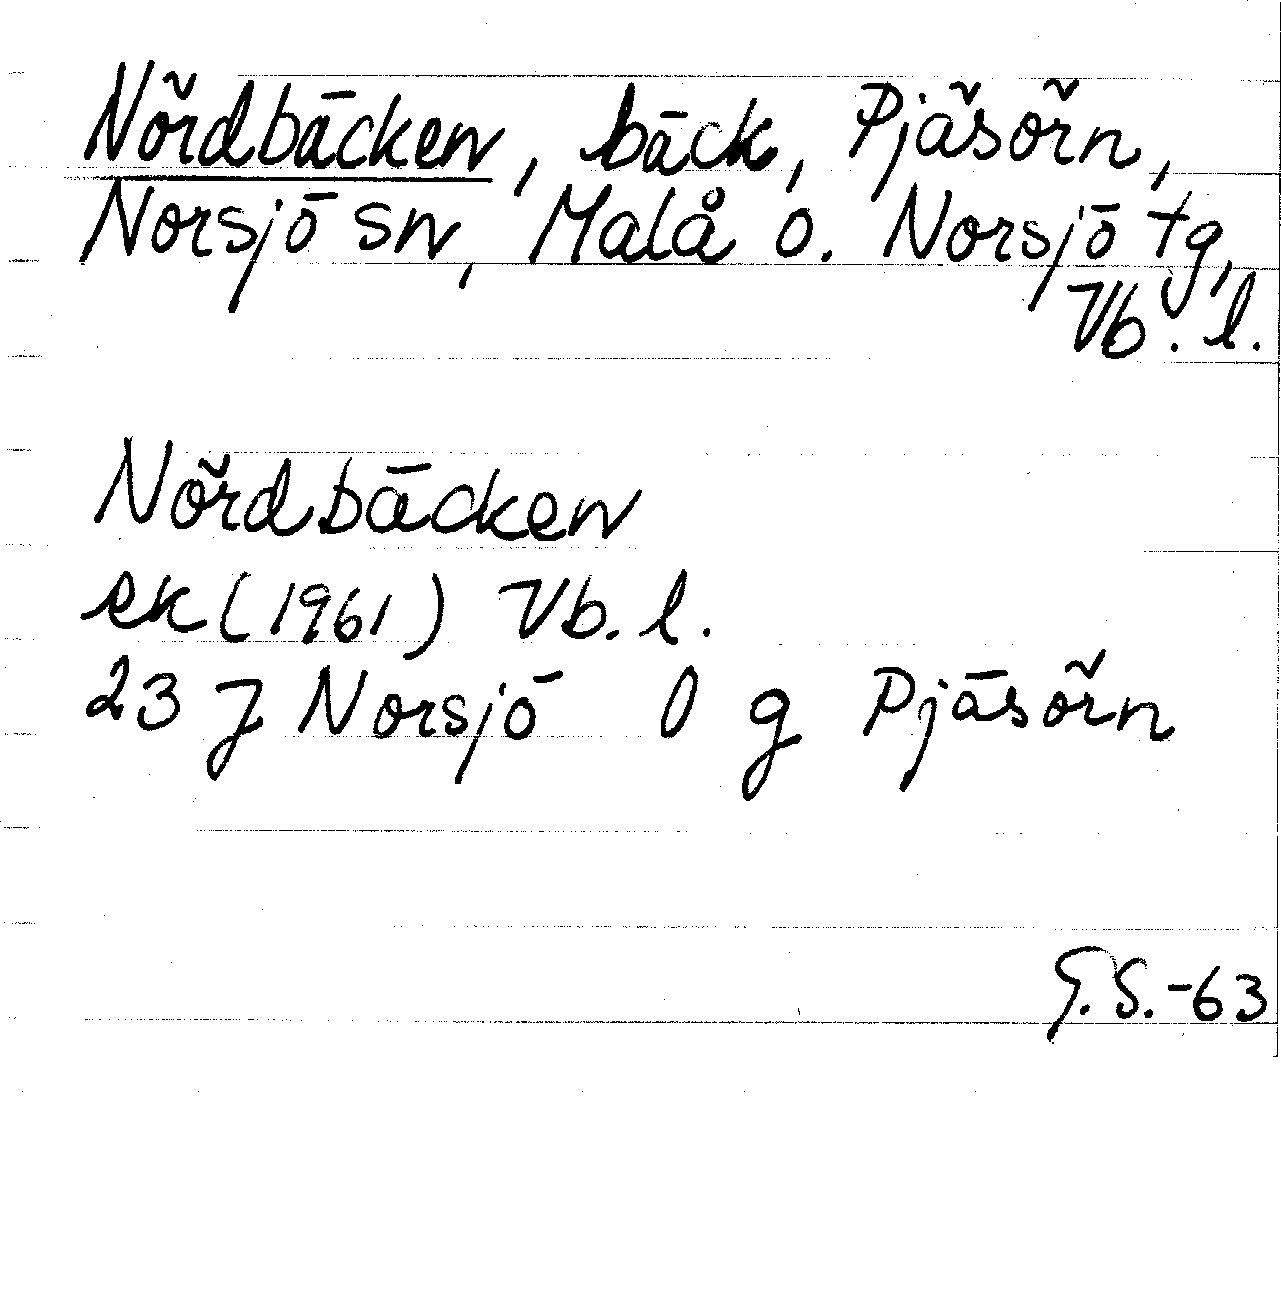 Nördbäcken, bäck, Pjäsörn,
Norsjö sn, Malå o. Norsjö tg,
Vb. l.
Nördbäcken
ek (1961) Vb. l.
23 J Norsjö 0 g Pjäsörn
G.S.-63